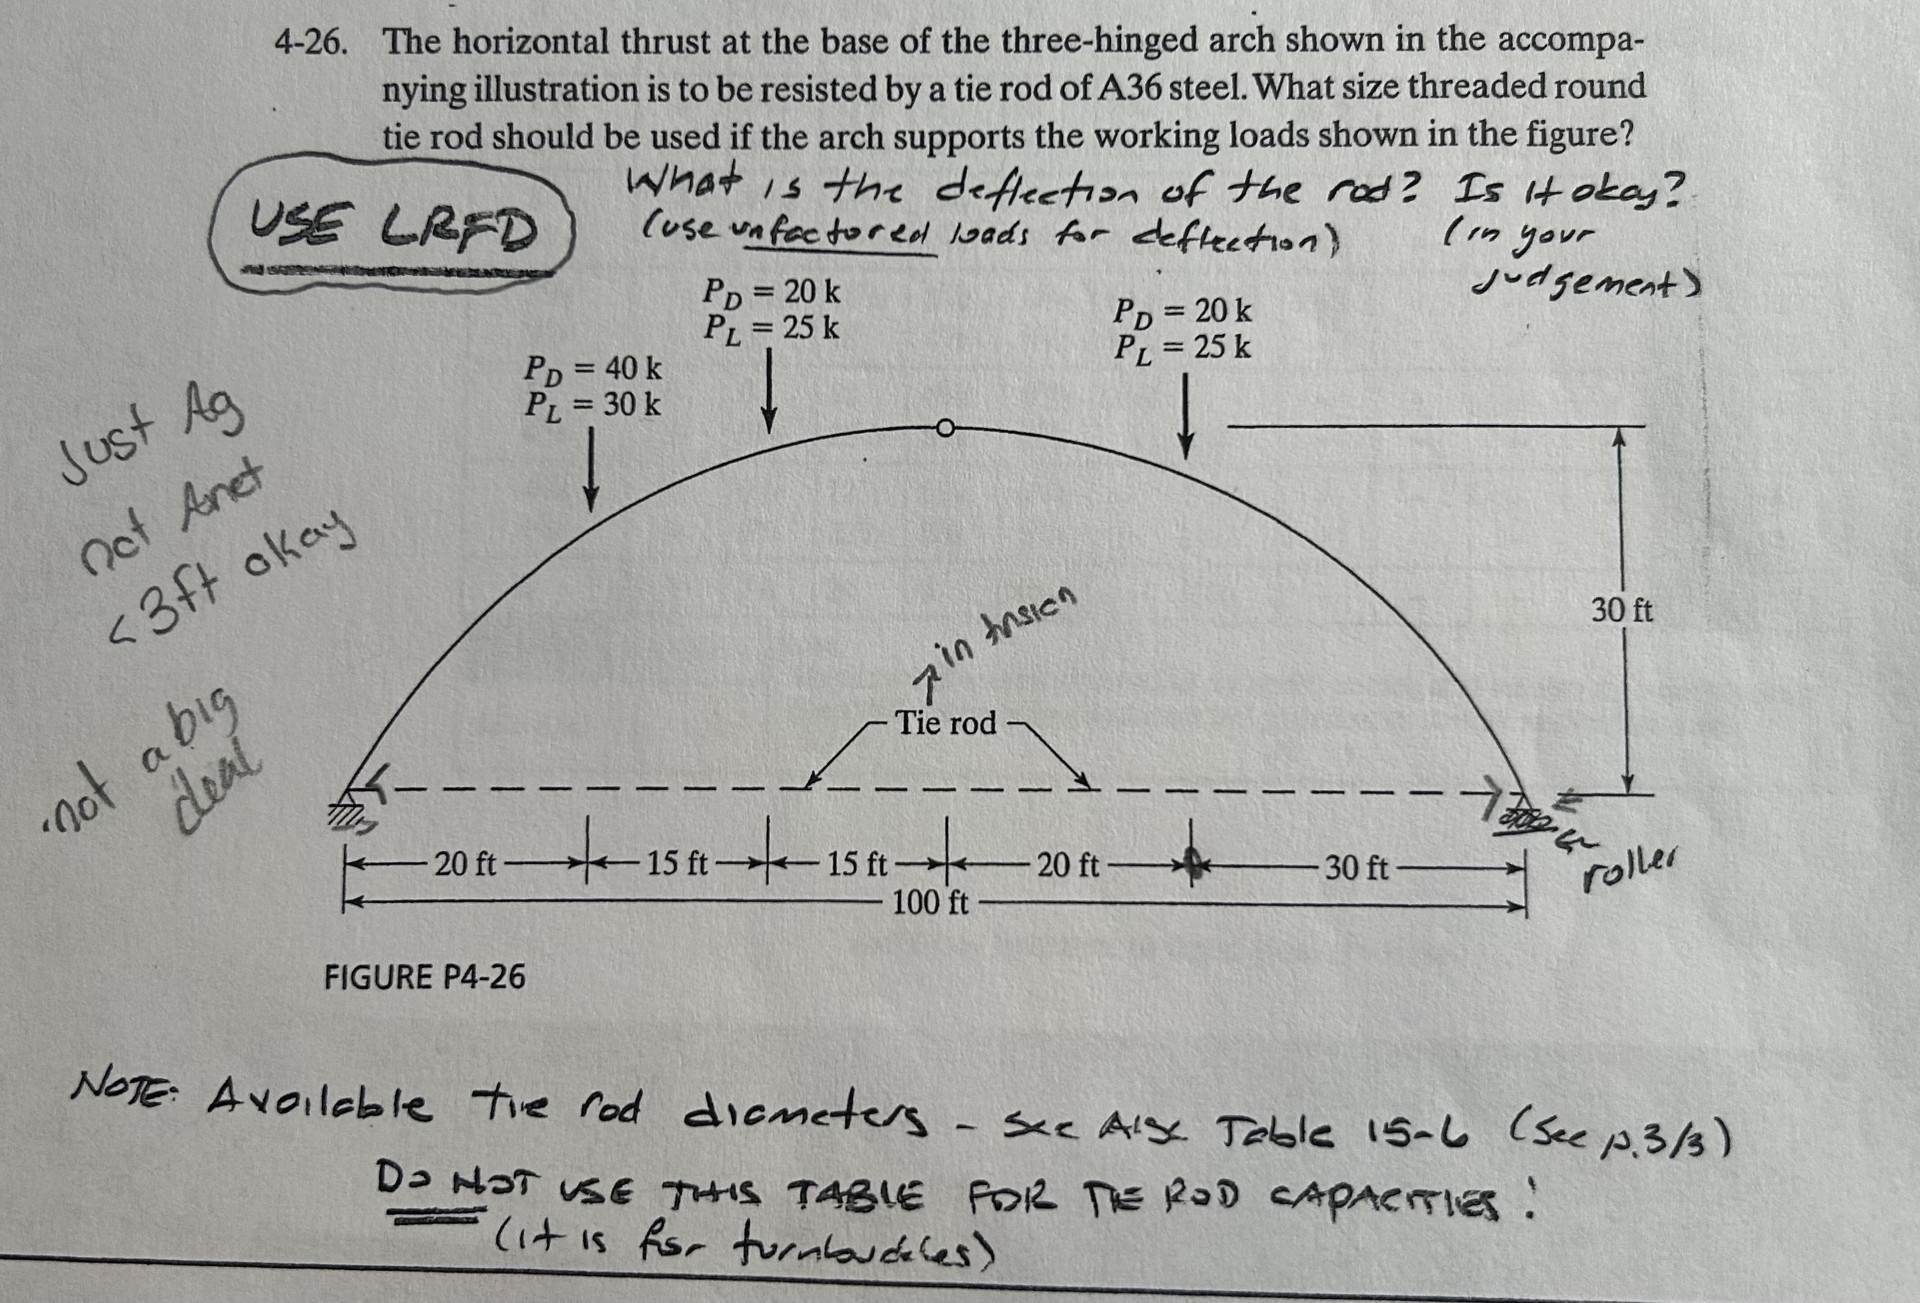 4-26. The horizontal thrust at the base of the three-hinged arch shown in the accompa-
nying illustration is to be resisted by a tie rod of A36 steel. What size threaded round
tie rod should be used if the arch supports the working loads shown in the figure?
USE LRFD
What is the deflection of the rod? Is it okay?
(use unfactored loads for deflection)
(in your
judgement)
P_D = 20 k
P_L = 25 k
P_D = 20 k
P_L = 25 k
P_D = 40 k
P_L = 30 k
Just Ag
not Anet
<3ft okay
not a big
deal
30 ft
in tension
Tie rod
roller
20 ft
15 ft
15 ft
20 ft
30 ft
100 ft
FIGURE P4-26
NOTE: Available tie rod diameters - See AISC Table 15-6 (See p.3/3)
DO NOT USE THIS TABLE FOR TIE ROD CAPACITIES!
(it is for turnbuckles)